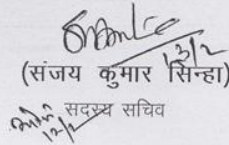 13/2
(संजय कुमार सिन्हा)
सदस्य सचिव